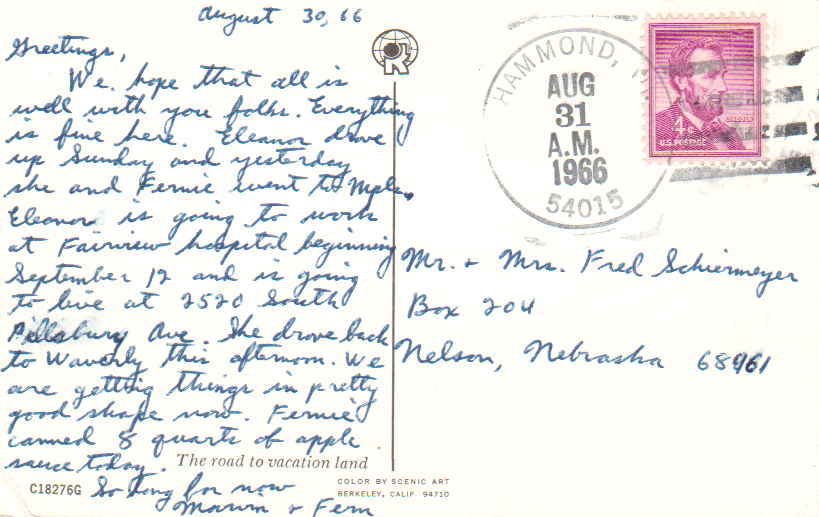 August 30, 66
Greetings,
We hope that all is
well with you folks. Everything
is fine here. Eleanor drove
up Sunday and yesterday
she and Fernie went to Mpls.
Eleanor is going to work
at Fairview hospital beginning
September 12 and is going
to live at 2520 South
Pillsbury Ave. She drove back
to Waverly this afternoon. We
are getting things in pretty
good shape now. Fernie
canned 8 quarts of apple
sauce today.
So long for now
& Fern
The road to vacation land
C18276G
COLOR BY SCENIC ART
BERKELEY, CALIF 94710
R
HAMMOND,
AUG
31
A.M.
1966
54015
4¢
LINCOLN
U.S. POSTAGE
Mr. + Mrs. Fred Schiermeyer
Box 204
Nelson, Nebraska 68961